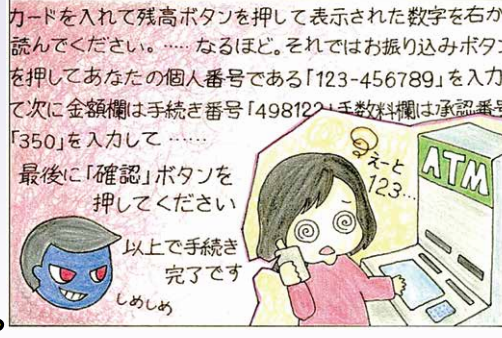 カードを入れて残高ボタンを押して表示された数字を右か
読んでください。…… なるほど。それではお振り込みボタン
を押してあなたの個人番号である「123-456789」を入力
て次に金額欄は手続き番号「498122」手数料欄は承認番号
「350」を入力して……
最後に「確認」ボタンを
押してください
以上で手続き
完了です
しめしめ
えーと
123…
ATM